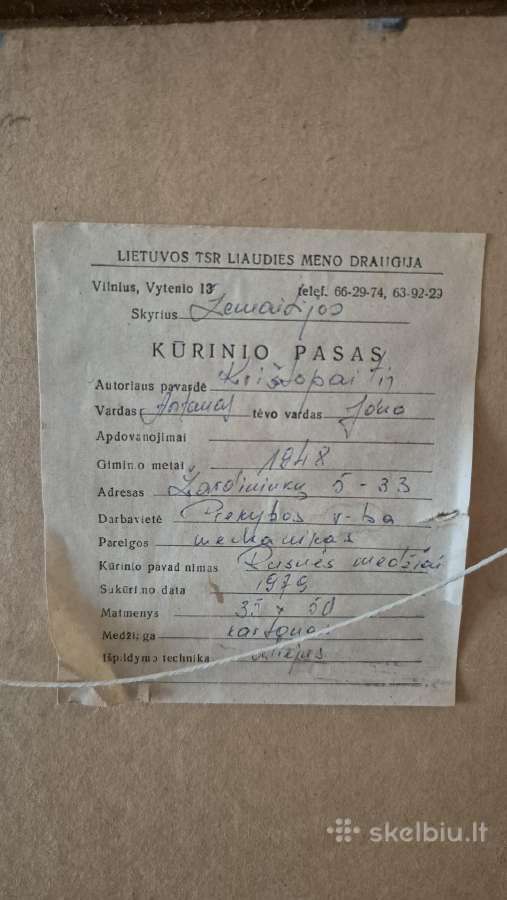 LIETUVOS TSR LIAUDIES MENO DRAUGIJA
Vilnius, Vytenio 13 telef. 66-29-74, 63-92-29
Skyrius Žemaitijos
KŪRINIO PASAS
Autoriaus pavardė Krištopaitis
Vardas Antanas tėvo vardas Jono
Apdovanojimai
Gimimo metai 1948
Adresas 5-33
Darbavietė Prekybos v-ba
Pareigos mechanikas
Kūrinio pavadinimas Rusnės medžiai
Sukūrimo data 1979
Matmenys 35 x 50
Medžiaga kartonas
Išpildymo technika aliejus
skelbiu.lt